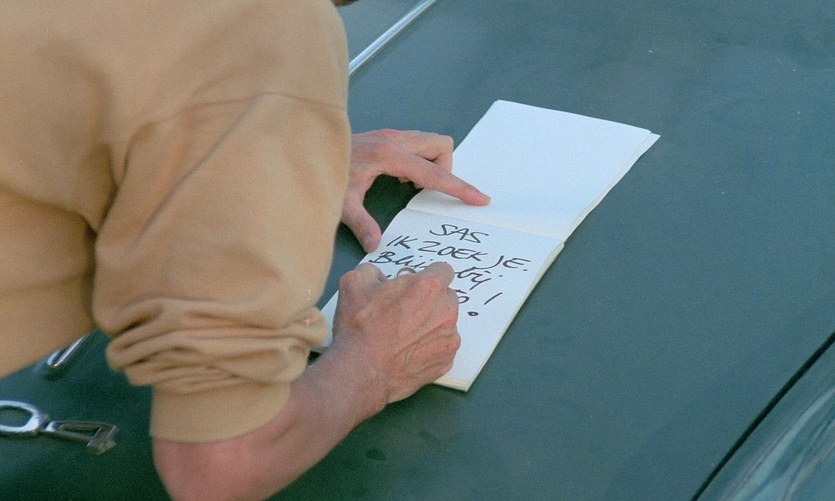 SAS
IK ZOEK JE.
Blijf bij
!